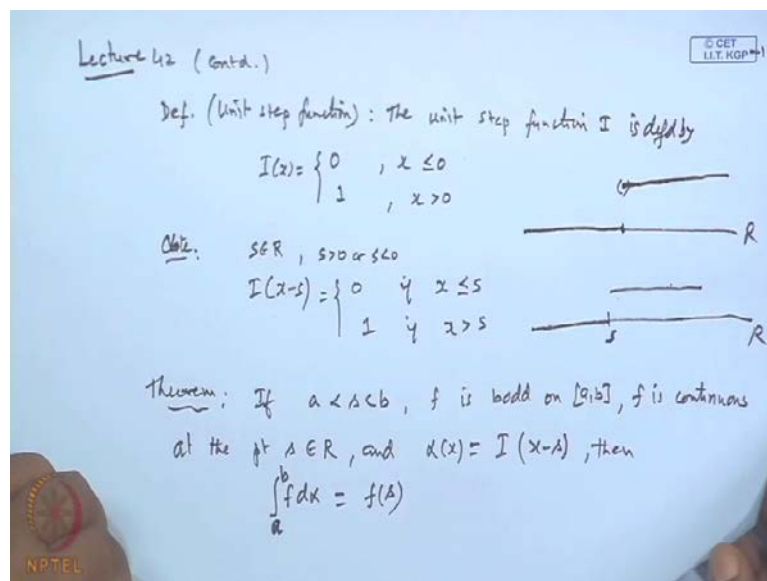 Lecture 42 (Contd.)
© CET
I.I.T. KGP
Def. (Unit step function): The unit step function I is defd by
I(x) = { 0 , x ≤ 0
1 , x > 0
R
Note: s ∈ R , s>0 or s<0
I(x-s) = { 0 if x ≤ s
1 if x > s
s R
Theorem: If a < s < b, f is bodd on [a,b], f is continuous
at the pt s ∈ R, and α(x) = I(x-s), then
∫_a^b f dα = f(s)
NPTEL